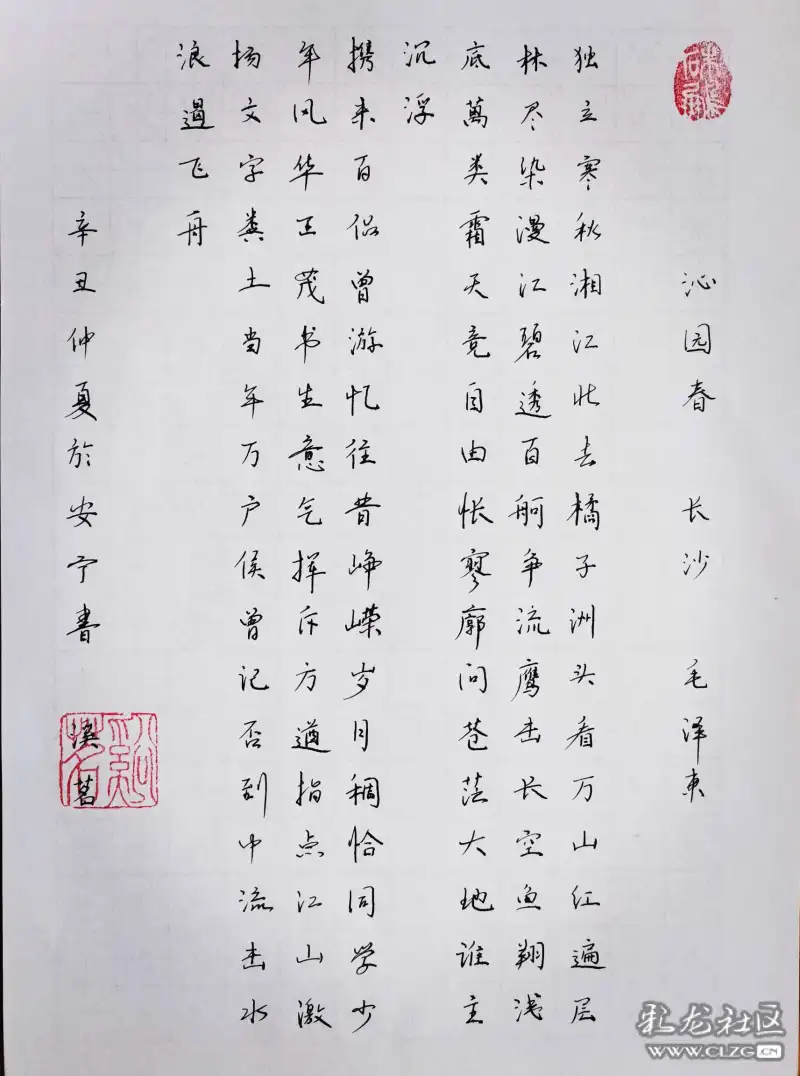 沁园春 长沙 毛泽東
独立寒秋湘江北去橘子洲头看万山红遍层
林尽染漫江碧透百舸争流鹰击长空鱼翔浅
底萬类霜天竞自由怅寥廓问苍茫大地谁主
沉浮
携来百侣曾游忆往昔峥嵘岁月稠恰同学少
年风华正茂书生意气挥斥方遒指点江山激
扬文字粪土当年万户侯曾记否到中流击水
浪遏飞舟
辛丑仲夏於安宁書 溪茗
彩龙社区
WWW.CLZG.CN